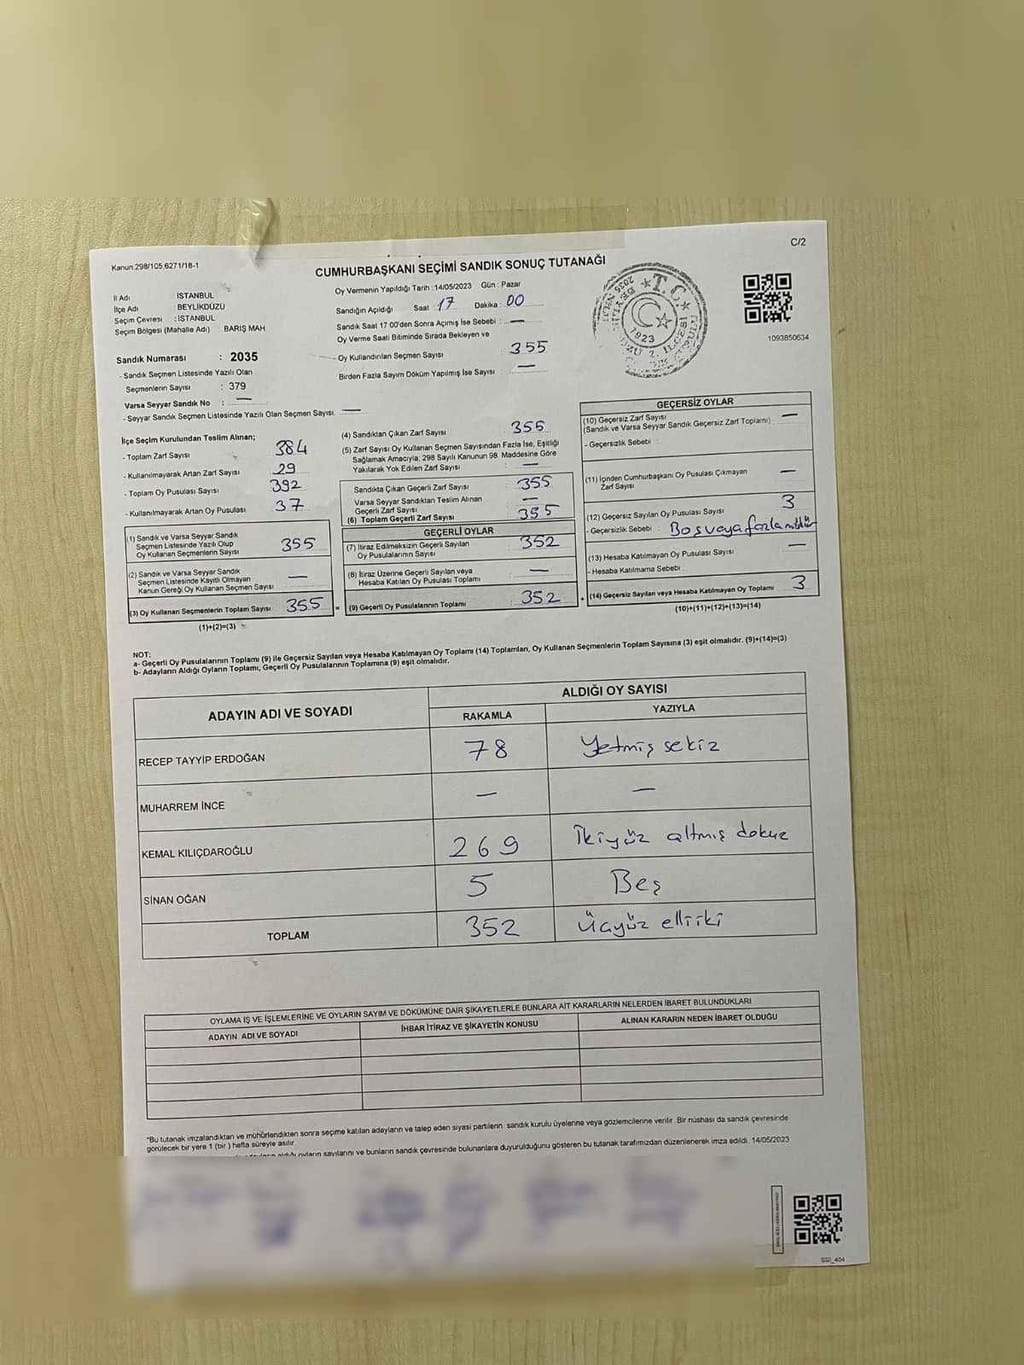 Kanun:298/105,6271/18-1
C/2
CUMHURBAŞKANI SEÇİMİ SANDIK SONUÇ TUTANAĞI
İl Adı : İSTANBUL
İlçe Adı : BEYLİKDÜZÜ
Seçim Çevresi : İSTANBUL
Seçim Bölgesi (Mahalle Adı) : BARIŞ MAH
Sandık Numarası : 2035
- Sandık Seçmen Listesinde Yazılı Olan
Seçmenlerin Sayısı : 379
Varsa Seyyar Sandık No : —
- Seyyar Sandık Seçmen Listesinde Yazılı Olan Seçmen Sayısı : —
Oy Vermenin Yapıldığı Tarih : 14/05/2023 Gün : Pazar
Sandığın Açıldığı Saat : 17 Dakika : 00
Sandık Saat 17:00'den Sonra Açılmış İse Sebebi : —
Oy Verme Saati Bitiminde Sırada Bekleyen ve
Oy Kullandırılan Seçmen Sayısı 355
Birden Fazla Sayım Döküm Yapılmış İse Sayısı : —
T.C.
1923
1093850634
İlçe Seçim Kurulundan Teslim Alınan;
- Toplam Zarf Sayısı 384
- Kullanılmayarak Artan Zarf Sayısı 29
- Toplam Oy Pusulası Sayısı 392
- Kullanılmayarak Artan Oy Pusulası 37
(1) Sandık ve Varsa Seyyar Sandık
Seçmen Listesinde Yazılı Olup
Oy Kullanan Seçmenlerin Sayısı 355
(2) Sandık ve Varsa Seyyar Sandık
Seçmen Listesinde Kayıtlı Olmayan
Kanun Gereği Oy Kullanan Seçmen Sayısı —
(3) Oy Kullanan Seçmenlerin Toplam Sayısı 355
(1)+(2)=(3)
(4) Sandıktan Çıkan Zarf Sayısı 355
(5) Zarf Sayısı Oy Kullanan Seçmen Sayısından Fazla İse, Eşitliği
Sağlamak Amacıyla; 298 Sayılı Kanunun 98. Maddesine Göre
Yakılarak Yok Edilen Zarf Sayısı —
Sandıkta Çıkan Geçerli Zarf Sayısı 355
Varsa Seyyar Sandıktan Teslim Alınan
Geçerli Zarf Sayısı —
(6) Toplam Geçerli Zarf Sayısı 355
GEÇERLİ OYLAR
(7) İtiraz Edilmeksizin Geçerli Sayılan
Oy Pusulalarının Sayısı 352
(8) İtiraz Üzerine Geçerli Sayılan veya
Hesaba Katılan Oy Pusulası Toplamı —
= (9) Geçerli Oy Pusulalarının Toplamı 352
GEÇERSİZ OYLAR
(10) Geçersiz Zarf Sayısı —
(Sandık ve Varsa Seyyar Sandık Geçersiz Zarf Toplamı)
- Geçersizlik Sebebi :
(11) İçinden Cumhurbaşkanı Oy Pusulası Çıkmayan —
Zarf Sayısı
(12) Geçersiz Sayılan Oy Pusulası Sayısı 3
- Geçersizlik Sebebi : Boş veya fazla mühür
(13) Hesaba Katılmayan Oy Pusulası Sayısı —
- Hesaba Katılmama Sebebi :
+ (14) Geçersiz Sayılan veya Hesaba Katılmayan Oy Toplamı 3
(10)+(11)+(12)+(13)=(14)
NOT:
a- Geçerli Oy Pusulalarının Toplamı (9) ile Geçersiz Sayılan veya Hesaba Katılmayan Oy Toplamı (14) Toplamları, Oy Kullanan Seçmenlerin Toplam Sayısına (3) eşit olmalıdır. (9)+(14)=(3)
b- Adayların Aldığı Oyların Toplamı, Geçerli Oy Pusulalarının Toplamına (9) eşit olmalıdır.
ADAYIN ADI VE SOYADI
ALDIĞI OY SAYISI
RAKAMLA YAZIYLA
RECEP TAYYİP ERDOĞAN 78 Yetmiş sekiz
MUHARREM İNCE — —
KEMAL KILIÇDAROĞLU 269 İkiyüz altmış dokuz
SİNAN OĞAN 5 Beş
TOPLAM 352 Üçyüz elli iki
OYLAMA İŞ VE İŞLEMLERİNE VE OYLARIN SAYIM VE DÖKÜMÜNE DAİR ŞİKAYETLERLE BUNLARA AİT KARARLARIN NELERDEN İBARET BULUNDUKLARI
ADAYIN ADI VE SOYADI İHBAR İTİRAZ VE ŞİKAYETİN KONUSU ALINAN KARARIN NEDEN İBARET OLDUĞU
*Bu tutanak imzalandıktan ve mühürlendikten sonra seçime katılan adayların ve talep eden siyasi partilerin sandık kurulu üyelerine veya gözlemcilerine verilir. Bir nüshası da sandık çevresinde
görülecek bir yere 1 (bir) hafta süreyle asılır.
aldığı oyların sayılarını ve bunların sandık çevresinde bulunanlara duyurulduğunu gösteren bu tutanak tarafımızdan düzenlenerek imza edildi. 14/05/2023